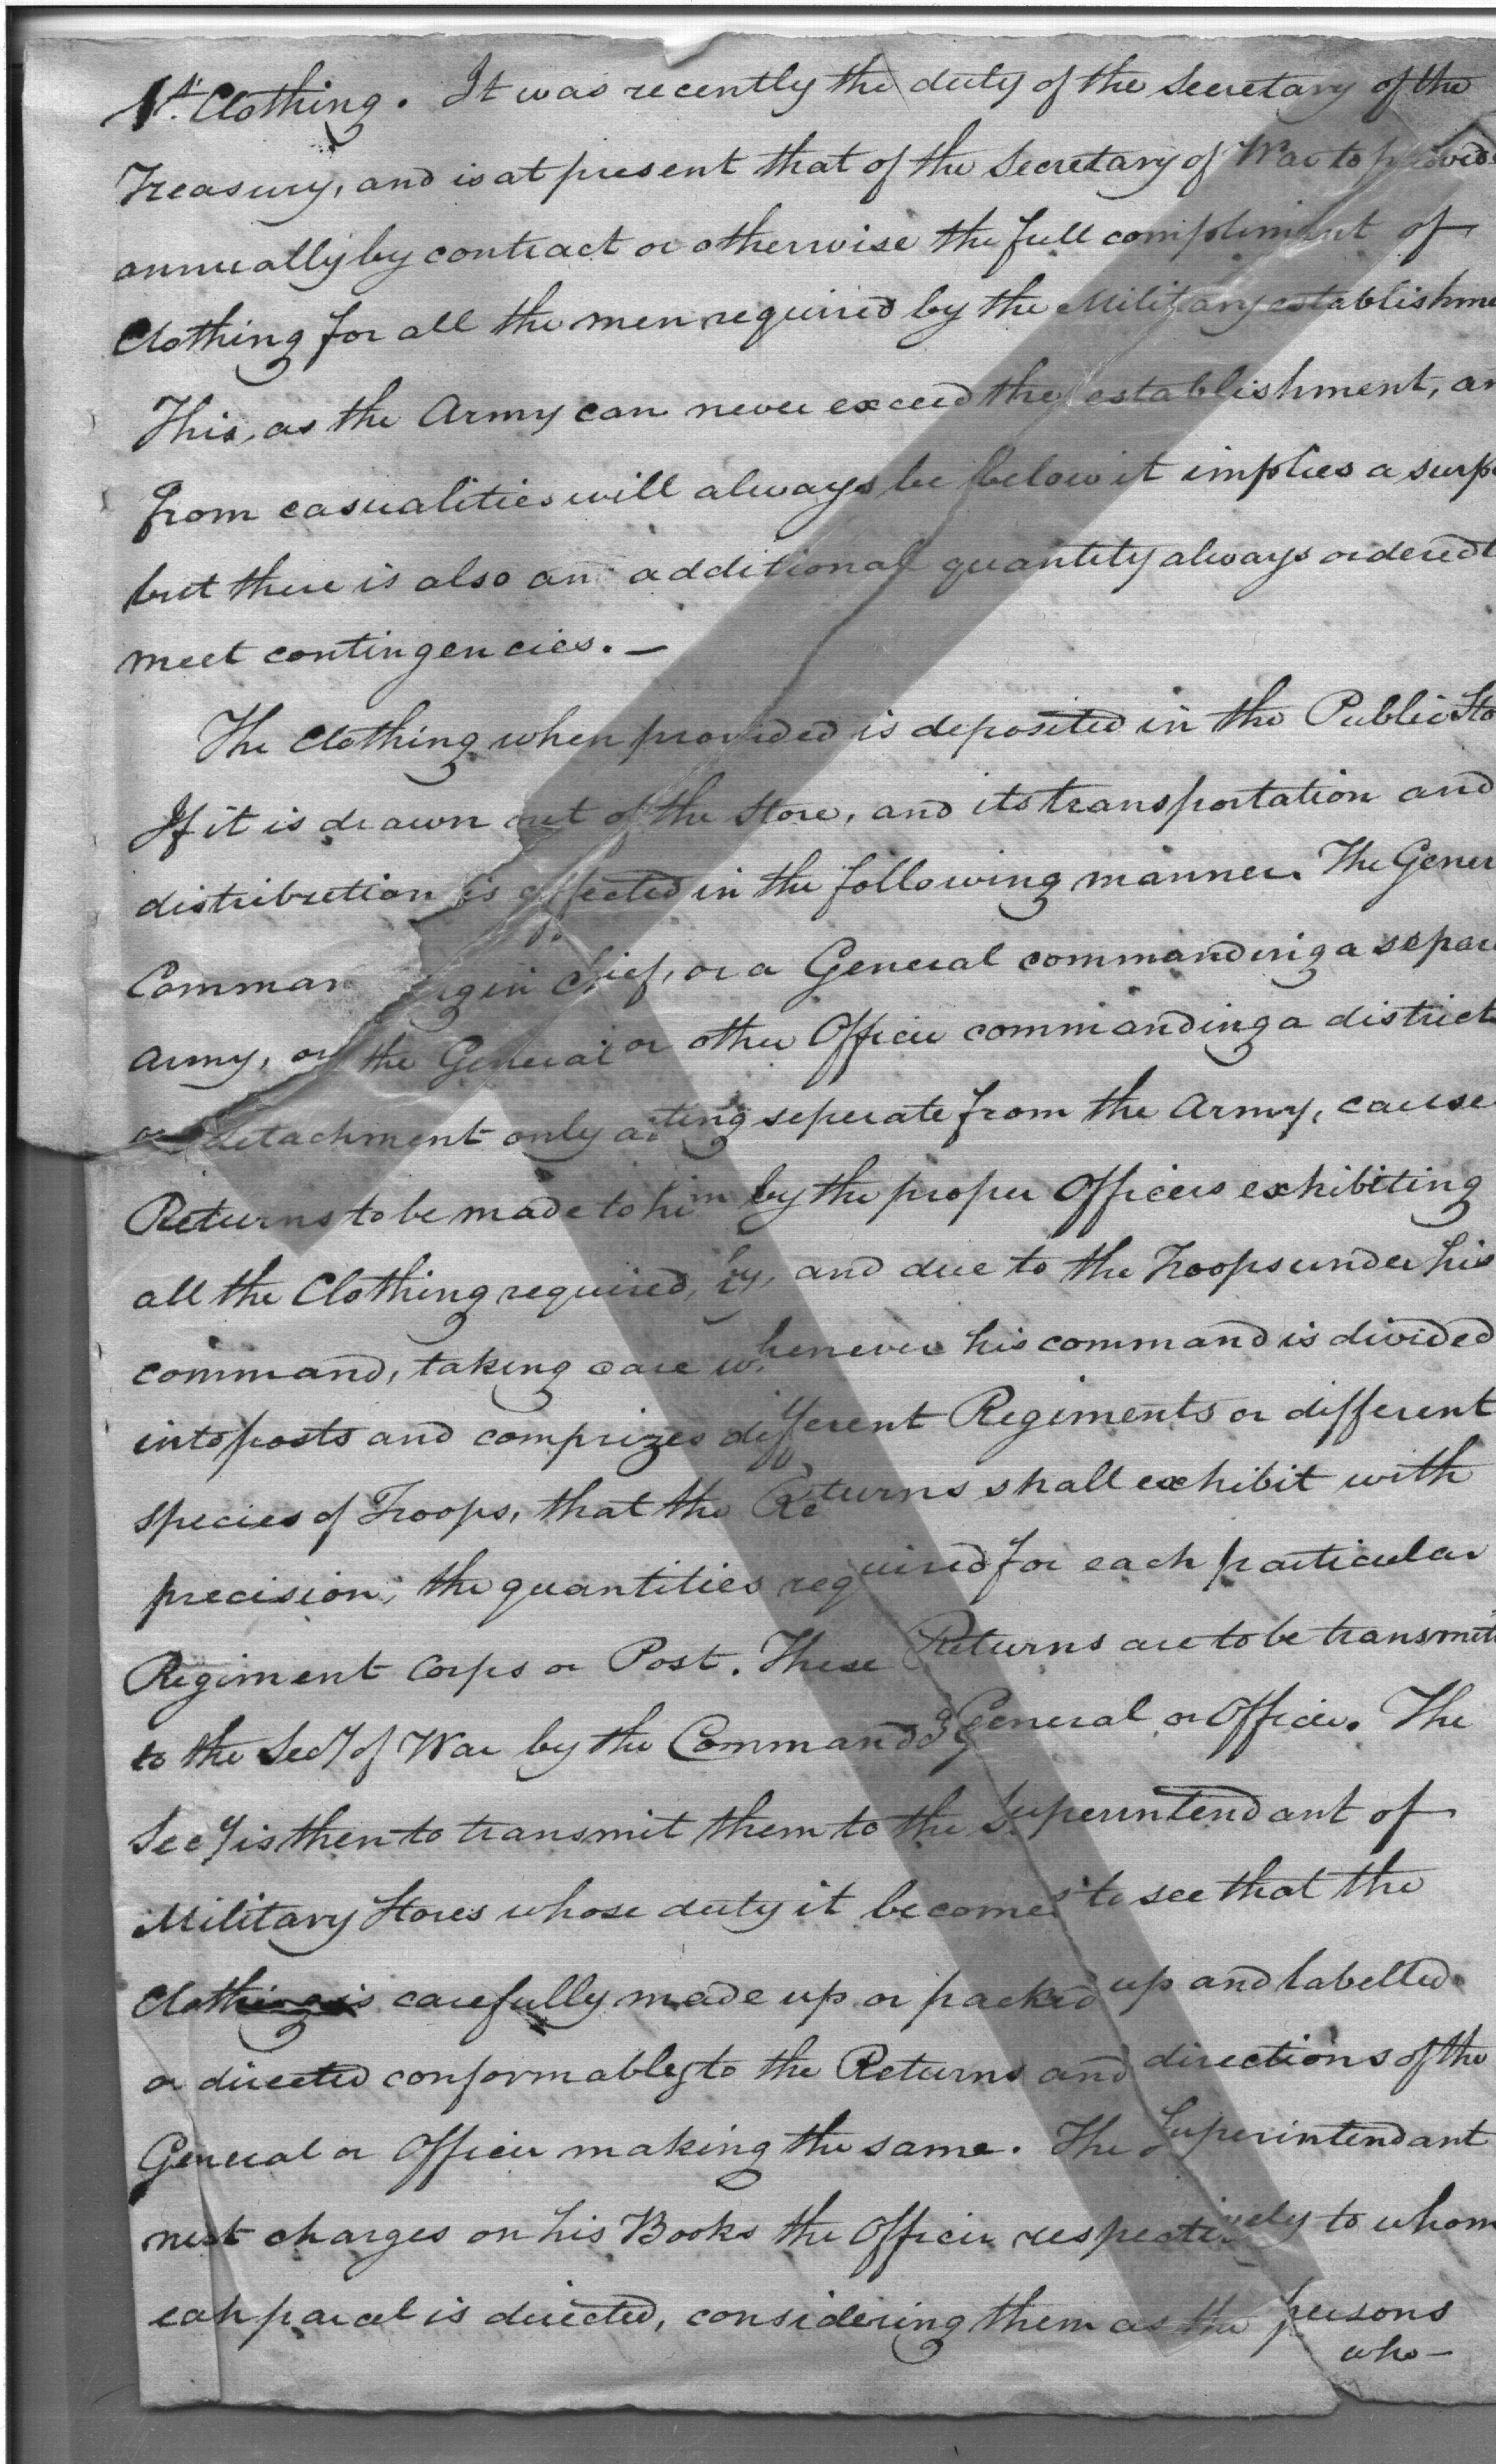 1st. Clothing. It was recently the duty of the Secretary of the
Treasury, and is at present that of the Secretary of War to provide
annually by contract or otherwise the full compliment of
Clothing for all the men required by the Military establishme
This, as the Army can never exceed the establishment, an
from casualities will always be below it implies a surp
but there is also an additional quantity always ordered t
meet contingencies. —
The Clothing when provided is deposited in the Public Sto
If it is drawn out of the Store, and its transportation and
distribution is effected in the following manner. The Gener
Comman g in Chief, or a General commanding a separ
Army, or the General or other Officer commanding a district
or detachment only acting seperate from the Army, cause
Returns to be made to him by the proper Officers exhibiting
all the Clothing required, by, and due to the Troops under his
command, taking care whenever his command is divided
into posts and comprizes different Regiments or different
species of Troops, that the Returns shall exhibit with
precision, the quantities required for each particular
Regiment Corps or Post. These Returns are to be transmit
to the Secy of War by the Commandg General or Officer. The
Secy is then to transmit them to the Superintendant of
Military Stores whose duty it becomes to see that the
Clothing is carefully made up or packed up and labelled
or directed conformably to the Returns and directions of the
General or Officer making the same. The Superintendant
next charges on his Books the Officer respectively to whom
eah parcel is directed, considering them as the persons
who —